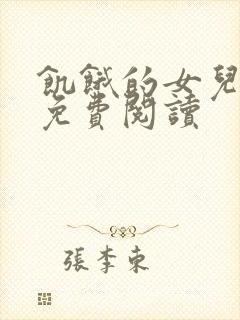 飢餓的女兒
免費閱讀
張李東